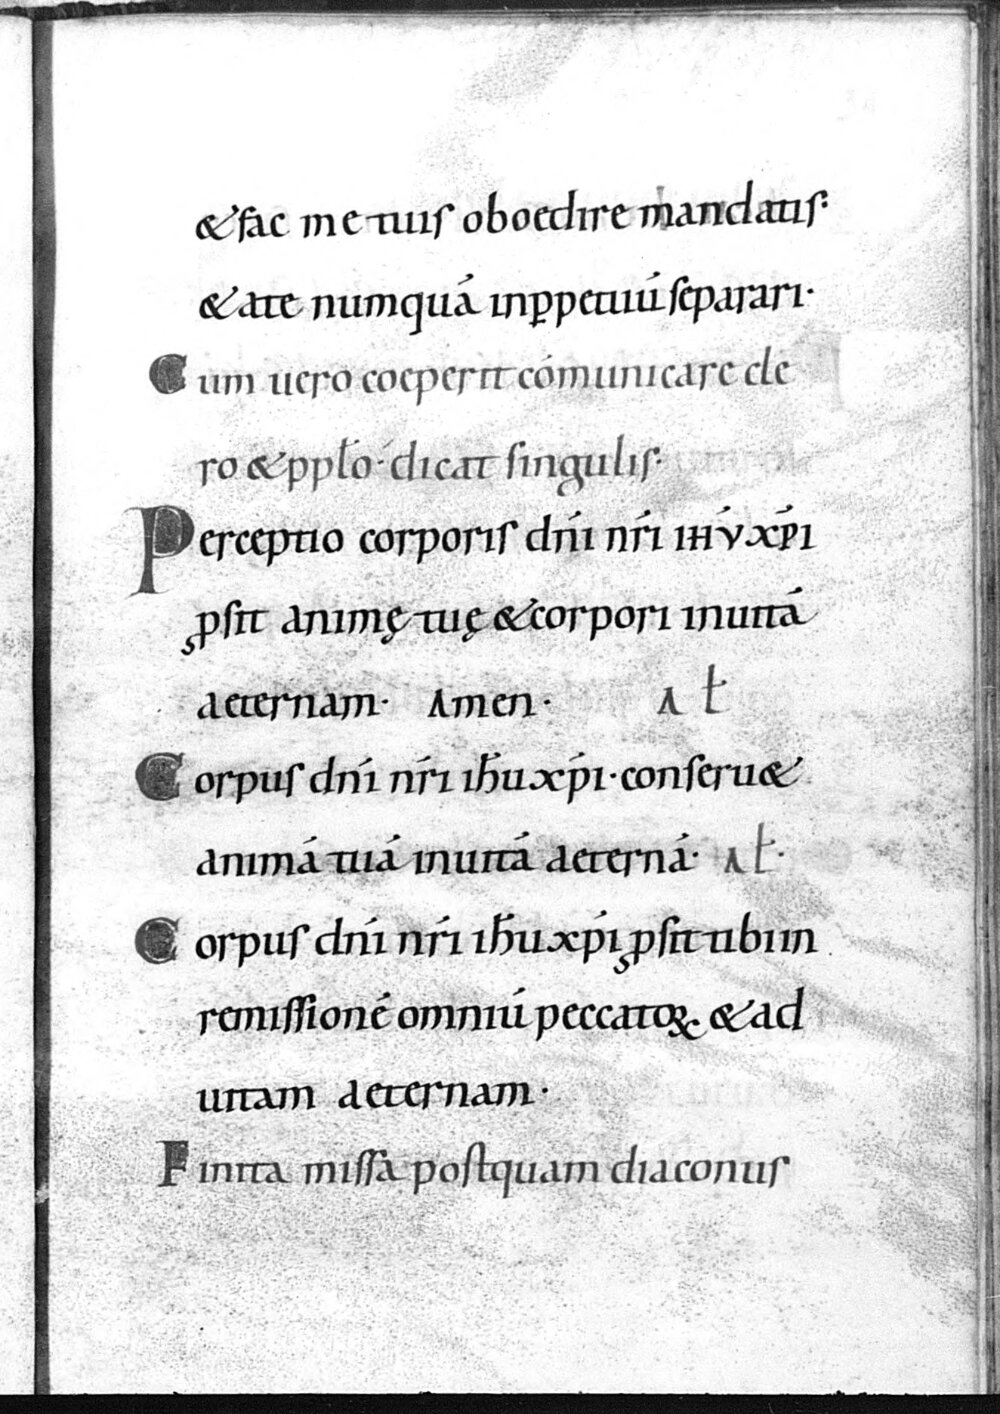 &fac me tuis oboedire mandatis:
&ate numquā inꝑpetuū separari·
Cum uero coeperit cōmunicare cle
ro &ppl̄o· dicat singulis·
Perceptio corporis dn̄i nr̄i ιηῡ xp̄i
ꝓsit animę tuę &corpori inuitā
aeternam· Amen· Al̄
Corpus dn̄i nr̄i ih̄u xp̄i· conseru&
animā tuā inuitā aeternā· Al̄·
Corpus dn̄i nr̄i ih̄u xp̄i ꝓsit tibi in
remissionē omniū peccatoꝝ &ad
uitam aeternam·
Finita missa postquam diaconus